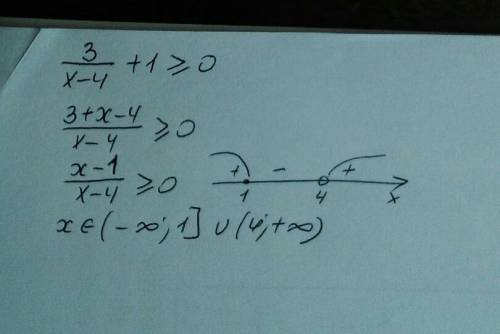 3/(x-4) + 1 ≥ 0
(3+x-4)/(x-4) ≥ 0
(x-1)/(x-4) ≥ 0
+ - +
1 4 x
x ∈ (-∞; 1] ∪ (4; +∞)